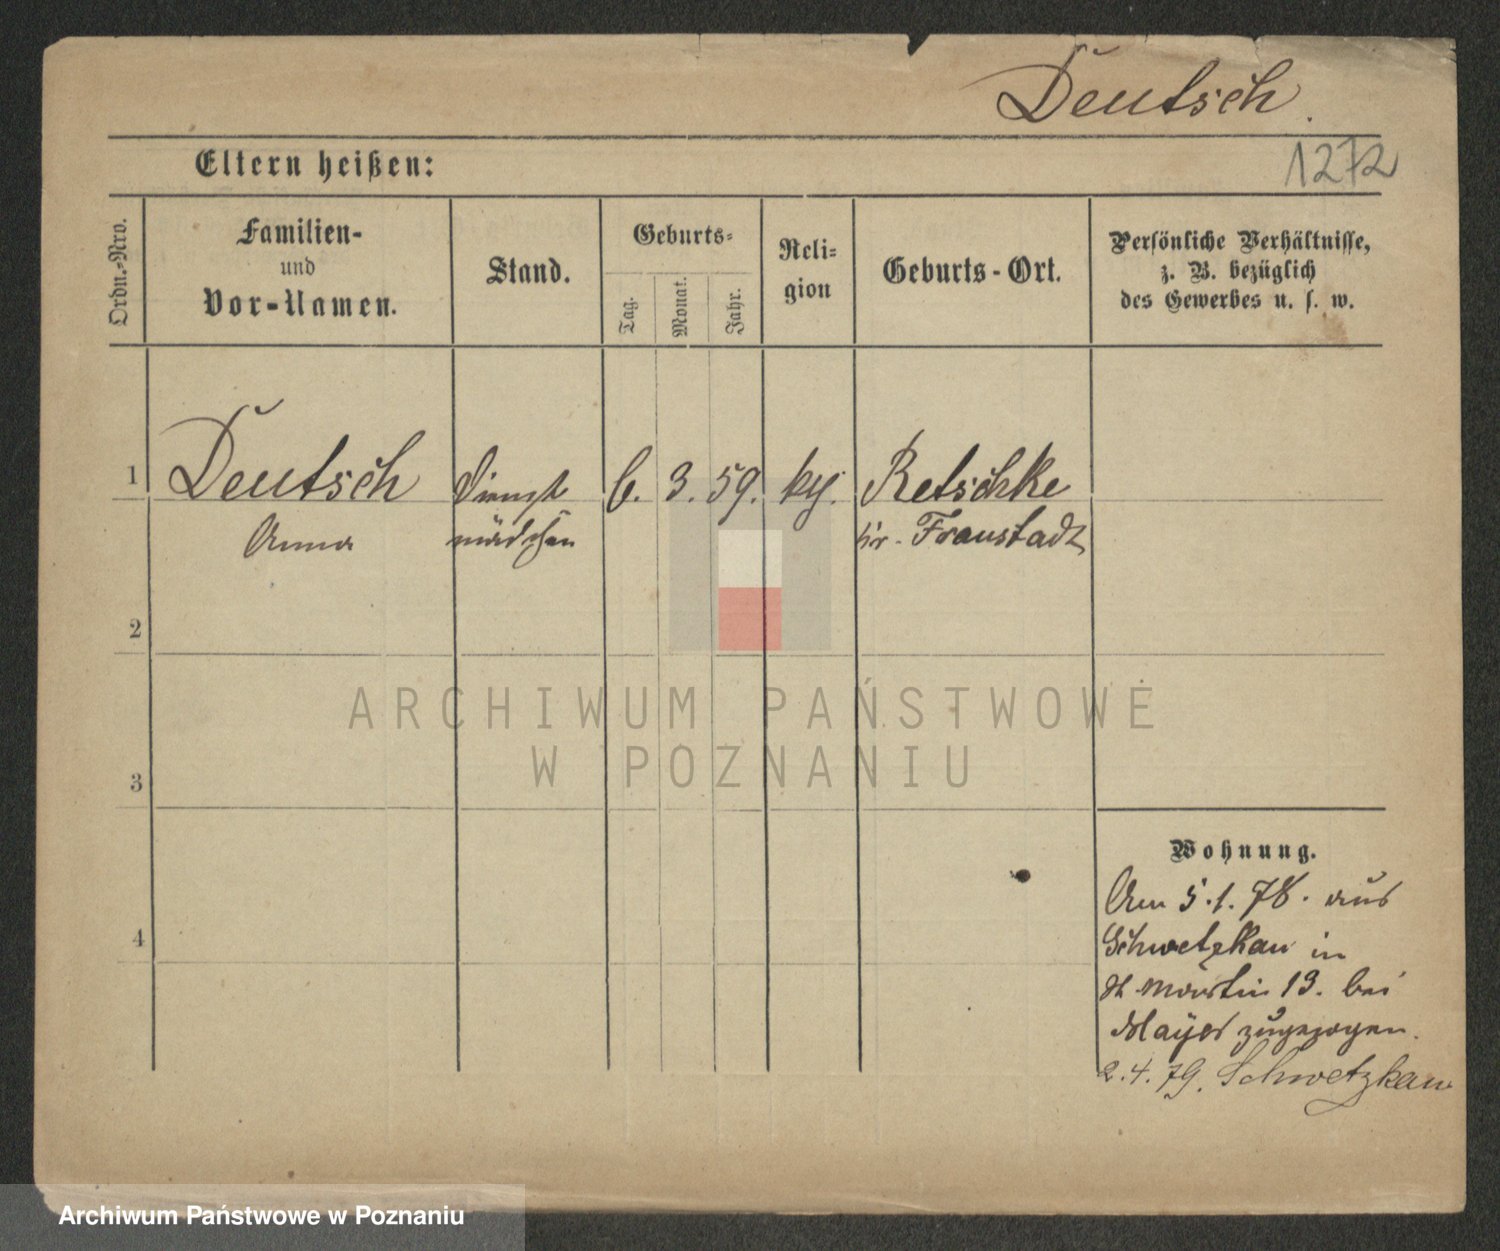 Deutsch.
1272
Eltern heißen:
Ordn.-Nro.
Familien-
und
Vor-Namen.
Stand.
Geburts-
Tag.
Monat.
Jahr.
Reli-
gion
Geburts-Ort.
Persönliche Verhältnisse,
z. B. bezüglich
des Gewerbes u. s. w.
1 Deutsch Dienst 6. 3. 59. Retschke
Anna mädchen Kr. Fraustadt
2
3
4
Wohnung.
Am 5.1.78. aus
Schwetzkau in
St Martin 13. bei
Mayer zugezogen.
2.4.79. Schwetzkau
ARCHIWUM PAŃSTWOWE
W POZNANIU
Archiwum Państwowe w Poznaniu